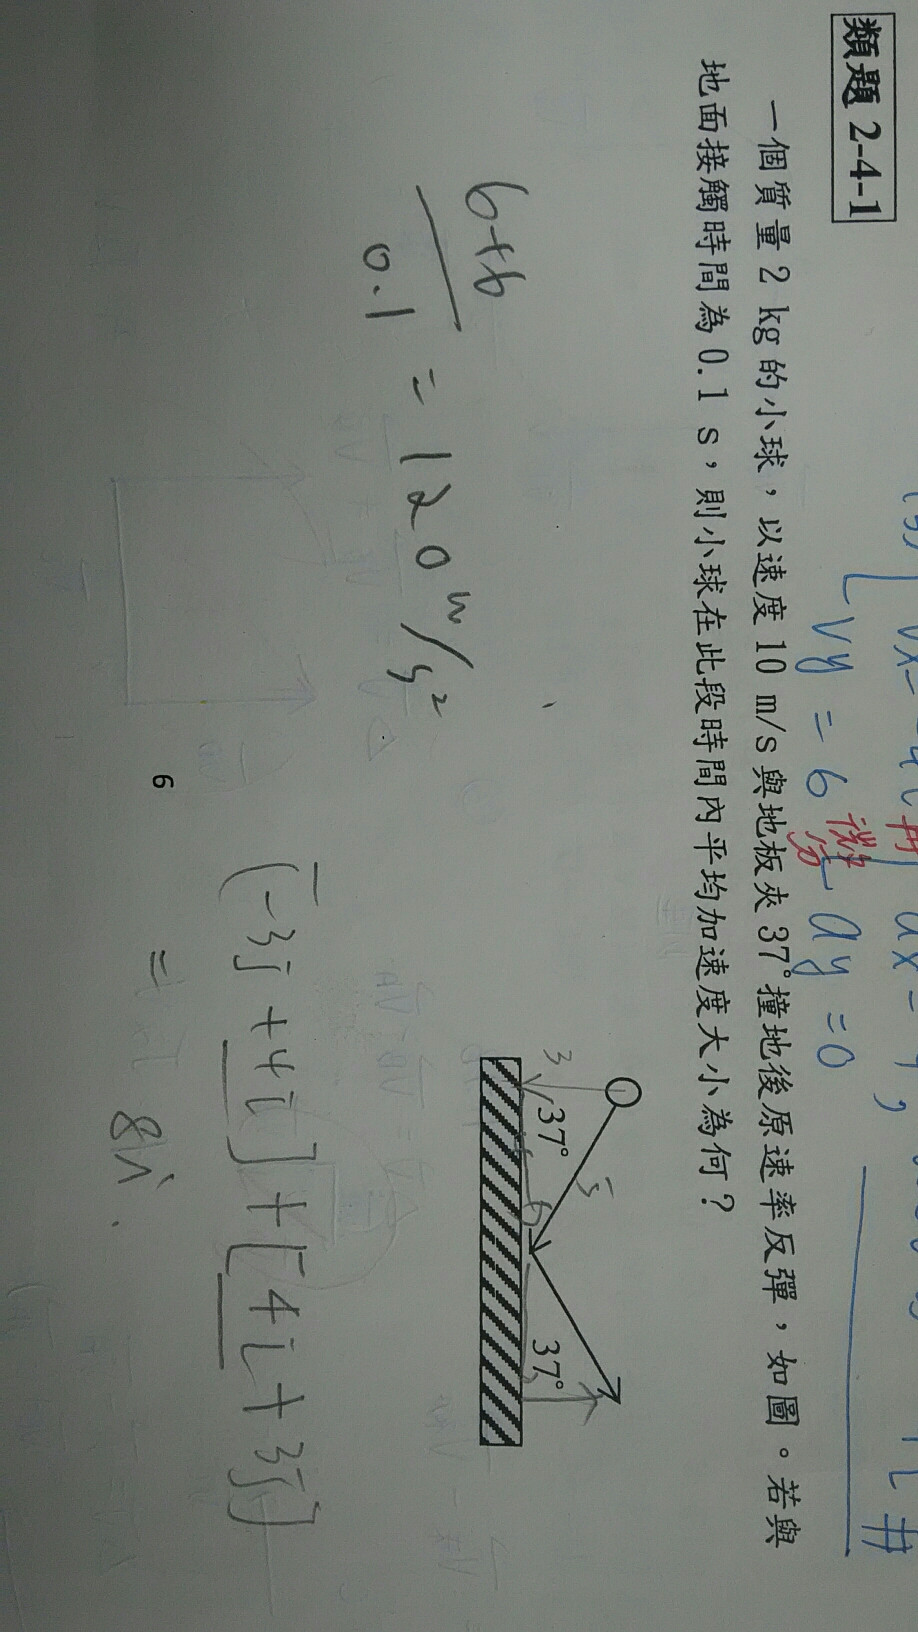 類題 2-4-1
一個質量 2 kg 的小球，以速度 10 m/s 與地板夾 37°撞地後原速率反彈，如圖。若與
地面接觸時間為 0.1 s，則小球在此段時間內平均加速度大小為何？
Vy = 6
微分
ay = 0
6+6
0.1
= 120 m/s²
3
37°
5
6
37°
(-3j + 4i] + [4i + 3j]
= 8i
6